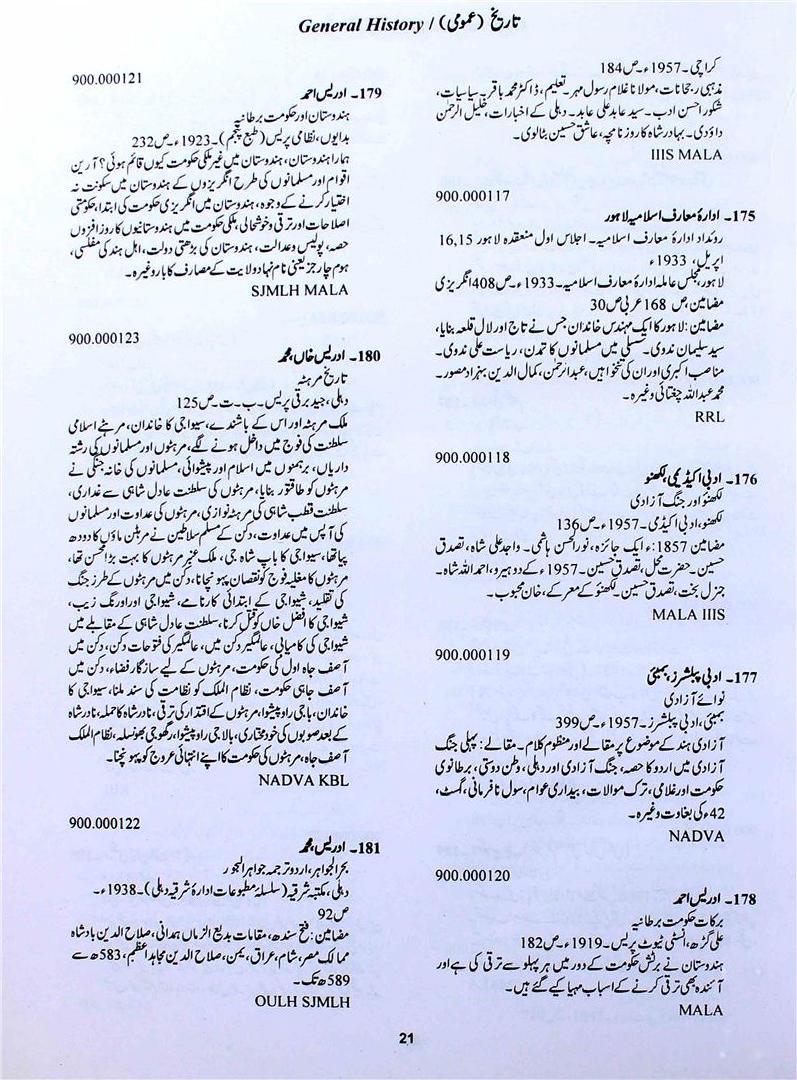 تاریخ (عمومی) / General History
کراچی۔ 1957ء۔ ص 184
مذہبی رجحانات، مولانا غلام رسول مہر۔ تعلیم، ڈاکٹر محمد باقر۔ سیاسیات،
شکور احسن ادب۔ سید عابد علی عابد۔ دہلی کے اخبارات، خلیل الرحمٰن
داؤدی۔ بہادر شاہ کا روزنامچہ، عاشق حسین بٹالوی۔
IIIS MALA
900.000117
175۔ ادارۂ معارف اسلامیہ لاہور
روئداد ادارۂ معارف اسلامیہ۔ اجلاس اول منعقدہ لاہور 16,15
اپریل، 1933ء
لاہور، مجلس عاملہ ادارۂ معارف اسلامیہ۔ 1933ء۔ ص 408 انگریزی
مضامین، ص 168 عربی ص 30
مضامین: لاہور کا ایک مہندس خاندان جس نے تاج اور لال قلعہ بنایا،
سید سلیمان ندوی۔ سسلی میں مسلمانوں کا تمدن، ریاست علی ندوی۔
مناصب اکبری اور ان کی تنخواہیں، عبدالرحمٰن، کمال الدین بہزاد مصور۔
محمد عبداللہ چغتائی وغیرہ۔
RRL
900.000118
176۔ ادبی اکیڈیمی، لکھنو
لکھنؤ اور جنگ آزادی
لکھنو، ادبی اکیڈمی۔ 1957ء۔ ص 136
مضامین 1857:ء ایک جائزہ، نورالحسن ہاشمی۔ واجد علی شاہ، تصدق
حسین۔ حضرت محل، تصدق حسین۔ 1957ء کے دو ہیرو، احمد اللہ شاہ۔
جنرل بخت، تصدق حسین۔ لکھنؤ کے معرکے، خان محبوب۔
MALA IIIS
900.000119
177۔ ادبی پبلشرز، بمبئی
نوائے آزادی
بمبئی، ادبی پبلشرز۔ 1957ء۔ ص 399
آزادی ہند کے موضوع پر مقالے اور منظوم کلام۔ مقالے: پہلی جنگ
آزادی میں اردو کا حصہ، جنگ آزادی اور دہلی، وطن دوستی، برطانوی
حکومت اور غلامی، ترک موالات، بیداری عوام، سول نافرمانی، گست،
42ء کی بغاوت وغیرہ۔
NADVA
900.000120
178۔ ادریس احمد
برکات حکومت برطانیہ
علی گڑھ، انسٹی ٹیوٹ پریس۔ 1919ء۔ ص 182
ہندستان نے برٹش حکومت کے دور میں ہر پہلو سے ترقی کی ہے اور
آئندہ بھی ترقی کرنے کے اسباب مہیا کیے گئے ہیں۔
MALA
900.000121
179۔ ادریس احمد
ہندوستان اور حکومت برطانیہ
بدایوں، نظامی پریس (طبع پنجم)۔ 1923ء۔ ص 232
ہمارا ہندوستان، ہندوستان میں غیر ملکی حکومت کیوں قائم ہوئی؟ آرین
اقوام اور مسلمانوں کی طرح انگریزوں کے ہندوستان میں سکونت نہ
اختیار کرنے کے وجوہ، ہندوستان میں انگریزی حکومت کی ابتدا، حکومتی
اصلاحات اور ترقی و خوشحالی، ملکی حکومت میں ہندوستانیوں کا روز افزوں
حصہ، پولیس و عدالت، ہندوستان کی بڑھتی دولت، اہل ہند کی مفلسی،
ہوم چارجز یعنی نام نہاد ولایت کے مصارف کا بار وغیرہ۔
SJMLH MALA
900.000123
180۔ ادریس خاں، محمد
تاریخ مرہٹہ
دہلی، جید برقی پریس۔ ب۔ت۔ ص 125
ملک مرہٹہ اور اس کے باشندے، سیواجی کا خاندان، مرہٹے اسلامی
سلطنت کی فوج میں داخل ہونے لگے، مرہٹوں اور مسلمانوں کی رشتہ
داریاں، برہمنوں میں اسلام اور پیشوائی، مسلمانوں کی خانہ جنگی نے
مرہٹوں کو طاقتور بنایا، مرہٹوں کی سلطنت عادل شاہی سے غداری،
سلطنت قطب شاہی کی مرہٹہ نوازی، مرہٹوں کی عداوت اور مسلمانوں
کی آپس میں عداوت، دکن کے مسلم سلاطین نے مرہٹن ماؤں کا دودھ
پیا تھا، سیواجی کا باپ شاہ جی، ملک عنبر مرہٹوں کا بہت بڑا محسن تھا،
مرہٹوں کا مغلیہ فوج کو نقصان پہونچانا، دکن میں مرہٹوں کے طرز جنگ
کی تقلید، شیواجی کے ابتدائی کارنامے، شیواجی اور اورنگ زیب،
شیواجی کا افضل خاں کو قتل کرنا، سلطنت عادل شاہی کے مقابلے میں
شیواجی کی کامیابی، عالمگیر دکن میں، عالمگیر کی فتوحات دکن، دکن میں
آصف جاہ اول کی حکومت، مرہٹوں کے لیے سازگار فضاء، دکن میں
آصف جاہی حکومت، نظام الملک کو نظامت کی سند ملنا، سیواجی کا
خاندان، باجی راؤ پیشوا، مرہٹوں کے اقتدار کی ترقی، نادر شاہ کا حملہ، نادر شاہ
کے بعد صوبوں کی خود مختاری، بالا جی راؤ پیشوا، رگھوجی بھونسلہ، نظام الملک
آصف جاہ، مرہٹوں کی حکومت کا اپنے انتہائی عروج کو پہونچنا۔
NADVA KBL
900.000122
181۔ ادریس، محمد
بحر الجواہر، اردو ترجمہ جواہر البحور
دہلی، مکتبہ شرقیہ (سلسلۂ مطبوعات ادارۂ شرقیہ دہلی)۔ 1938ء۔
ص 92
مضامین: فتح سندھ، مقامات بدیع الزماں ہمدانی، صلاح الدین بادشاہ
ممالک مصر، شام، عراق، یمن، صلاح الدین مجاہد اعظم، 583ھ سے
589ھ تک۔
OULH SJMLH
21